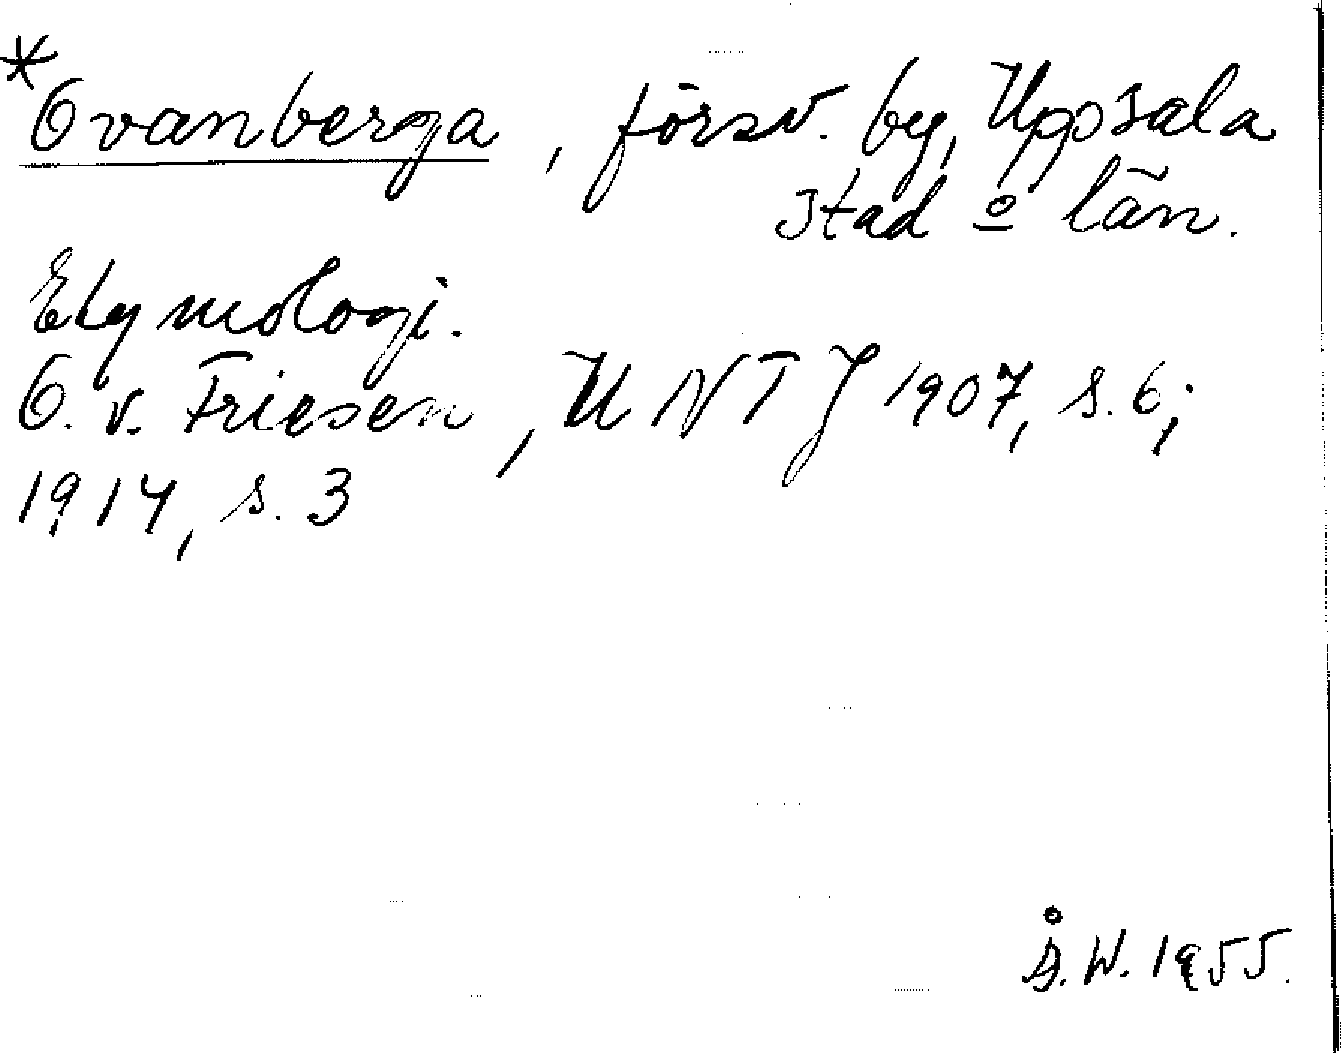 *Ovanberga, försv. by, Uppsala
stad o län.
Etymologi.
O. v. Friesen, UNTJ 1907, s. 6;
1914, s. 3
Å. W. 1955.